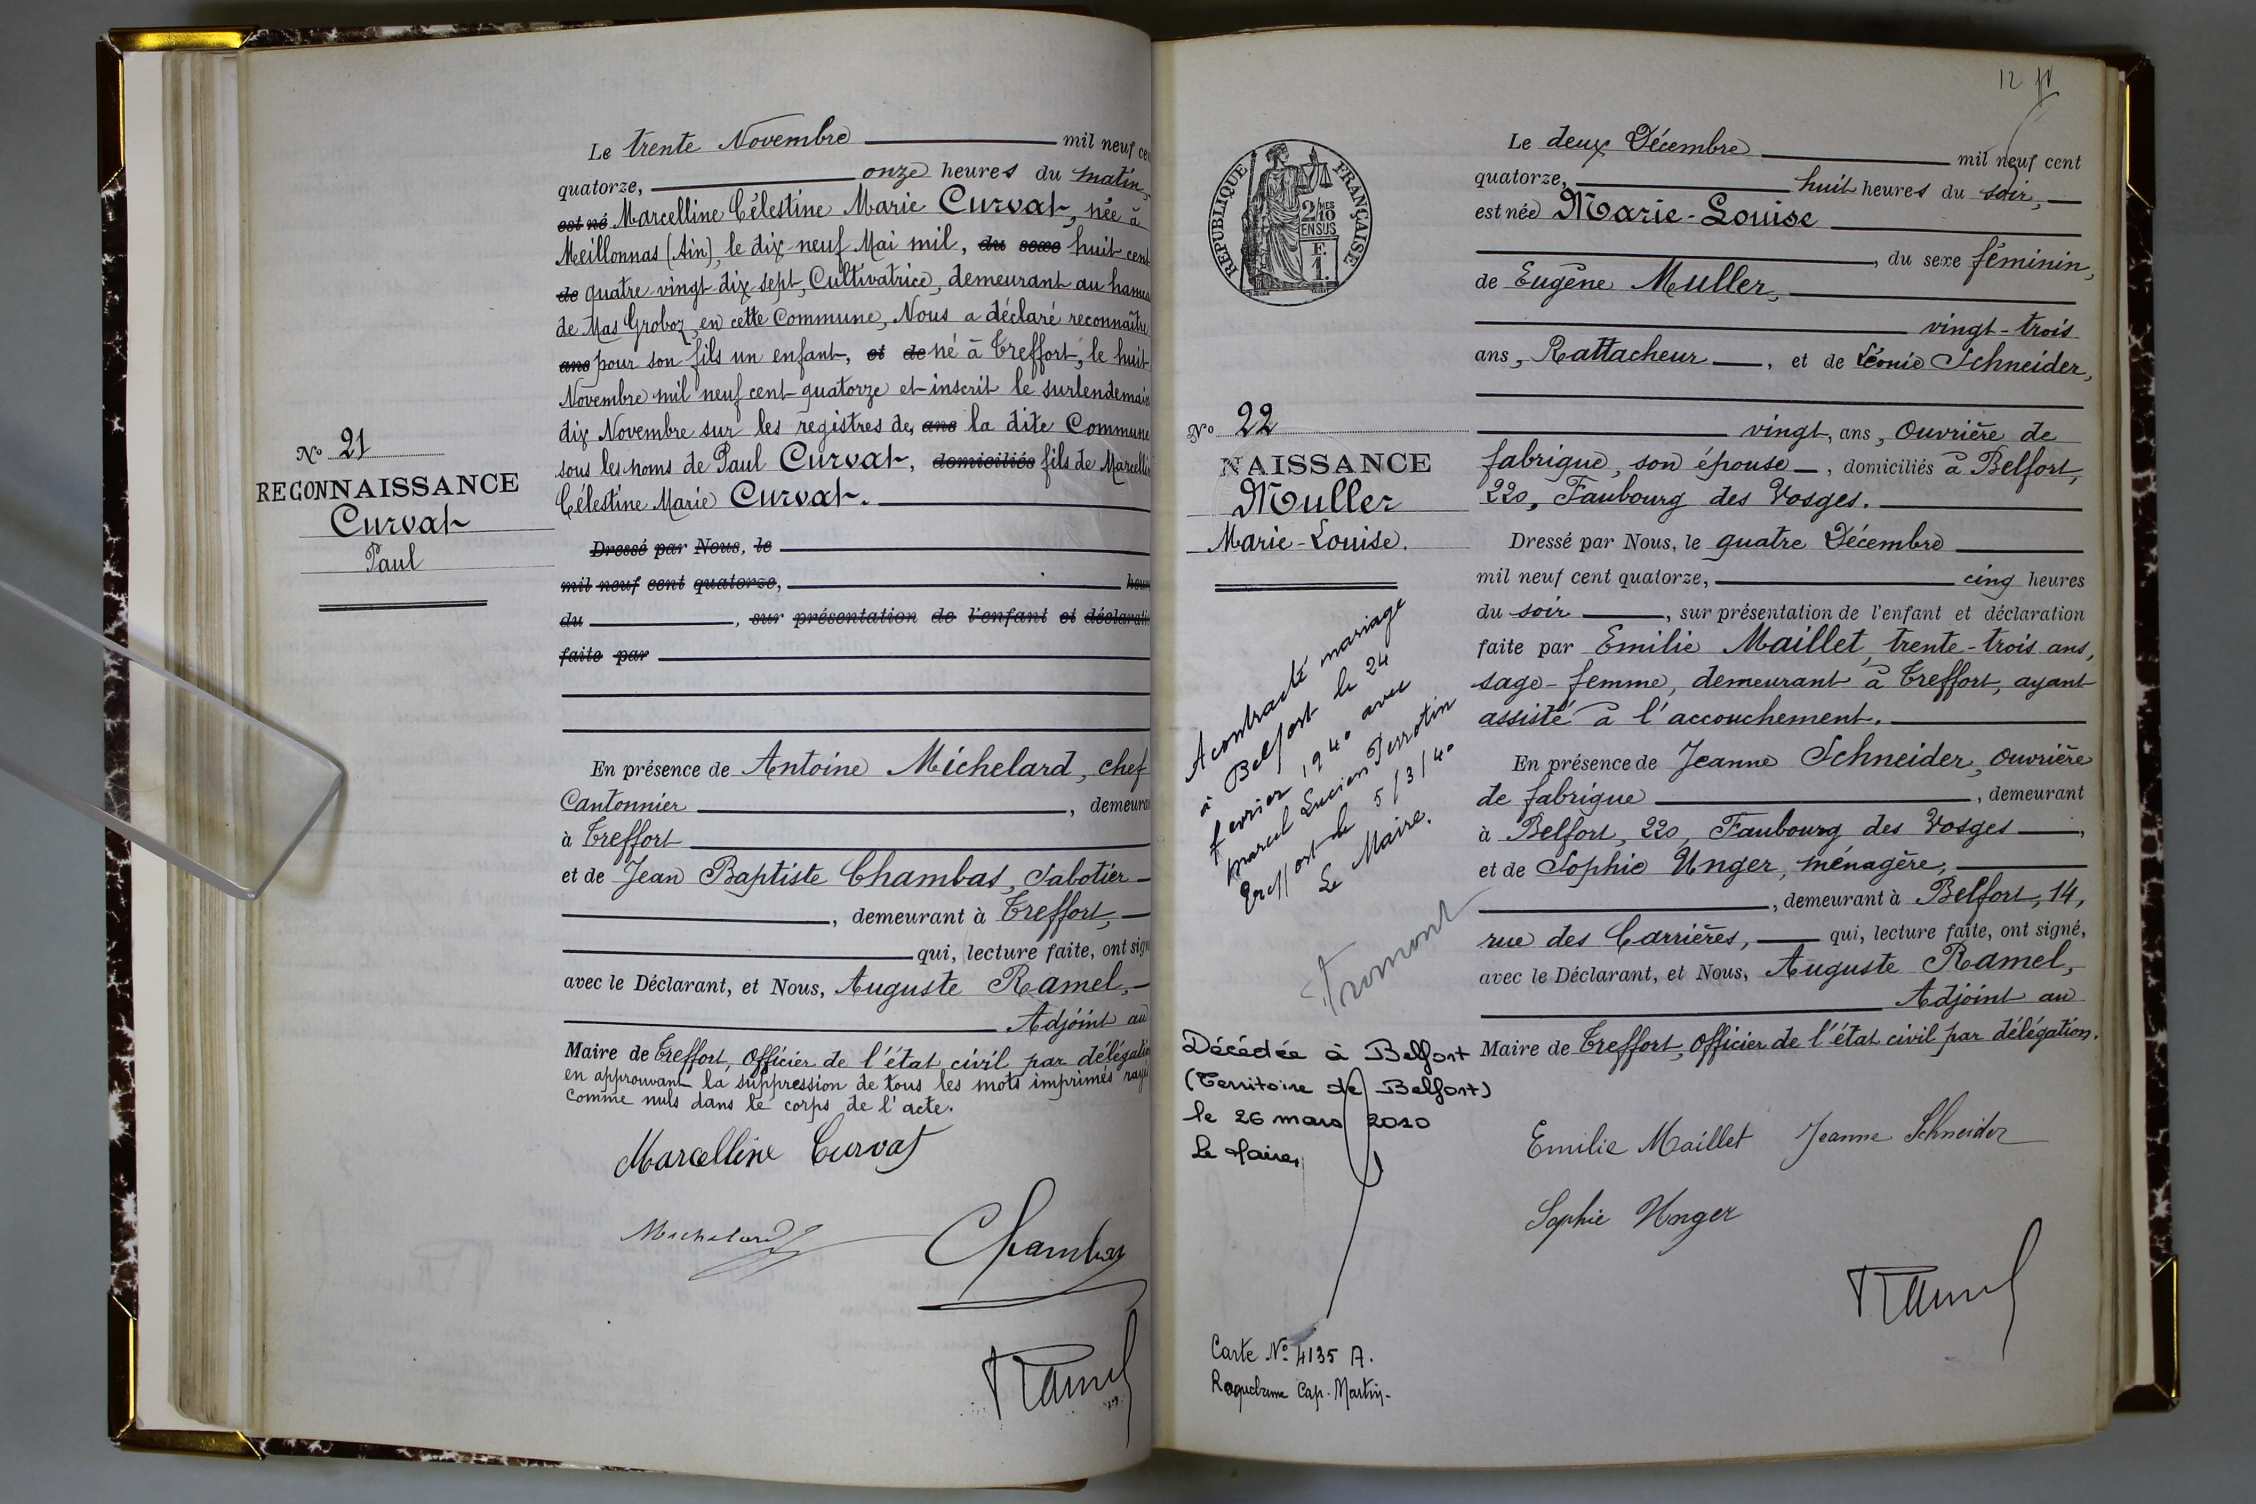 Le trente Novembre mil neuf
quatorze, onze heures du matin,
est né Marcelline Célestine Marie Curvat, née à
Meillonnas (Ain), le dix neuf Mai mil, du sexe huit cent
de quatre vingt dix sept, Cultivatrice, demeurant au
de Mas Groboz, en cette Commune, Nous a déclaré reconnaître
ans pour son fils un enfant, et de né à Treffort, le huit
Novembre mil neuf cent quatorze et inscrit le surlendemain
dix Novembre sur les registres de, ans la dite Commune
sous les noms de Paul Curvat, domiciliés fils de
Célestine Marie Curvat.
Nº 21
RECONNAISSANCE
Curvat
Paul
Dressé par Nous, le
mil neuf cent quatorze,
du , sur présentation de l'enfant et
faite par
En présence de Antoine Michelard, chef
Cantonnier , 
à Treffort
et de Jean Baptiste Chambas, Sabotier
, demeurant à Treffort,
qui, lecture faite, ont
avec le Déclarant, et Nous, Auguste Ramel,
Adjoint au
Maire de Treffort, Officier de l'état civil par
en approuvant la suppression de tous les mots imprimés
comme nuls dans le corps de l'acte.
Marcelline Curvat
Michelard
Chambas
Ramel
12
RÉPUBLIQUE FRANÇAISE
2/10 MES
EN SUS
F.
1.
Le deux Décembre mil neuf cent
quatorze, huit heures du soir,
est née Marie-Louise
, du sexe féminin,
de Eugène Muller,
vingt-trois
ans, Rattacheur , et de Léonie Schneider,
vingt, ans, Ouvrière de
fabrique, son épouse , domiciliés à Belfort,
220, Faubourg des Vosges.
Nº 22
NAISSANCE
Muller
Marie-Louise.
Dressé par Nous, le quatre Décembre
mil neuf cent quatorze, cinq heures
du soir , sur présentation de l'enfant et déclaration
faite par Emilie Maillet, trente-trois ans,
sage-femme, demeurant à Treffort, ayant
assisté à l'accouchement.
En présence de Jeanne Schneider, Ouvrière
de fabrique , demeurant
à Belfort, 220, Faubourg des Vosges ,
et de Sophie Unger, ménagère,
, demeurant à Belfort, 14,
rue des Carrières, qui, lecture faite, ont signé,
avec le Déclarant, et Nous, Auguste Ramel,
Adjoint au
Maire de Treffort, Officier de l'état civil par délégation.
Emilie Maillet Jeanne Schneider
Sophie Unger
Ramel
A contracté mariage
à Belfort le 24
fevrier 1940 avec
Marcel Lucien Perrotin
Treffort le 5/3/40
Le Maire.
Fromont
Décédée à Belfort
(Territoire de Belfort)
le 26 mars 2010
Le Maire,
Carte Nº 4135 A.
Roquebrune Cap-Martin-